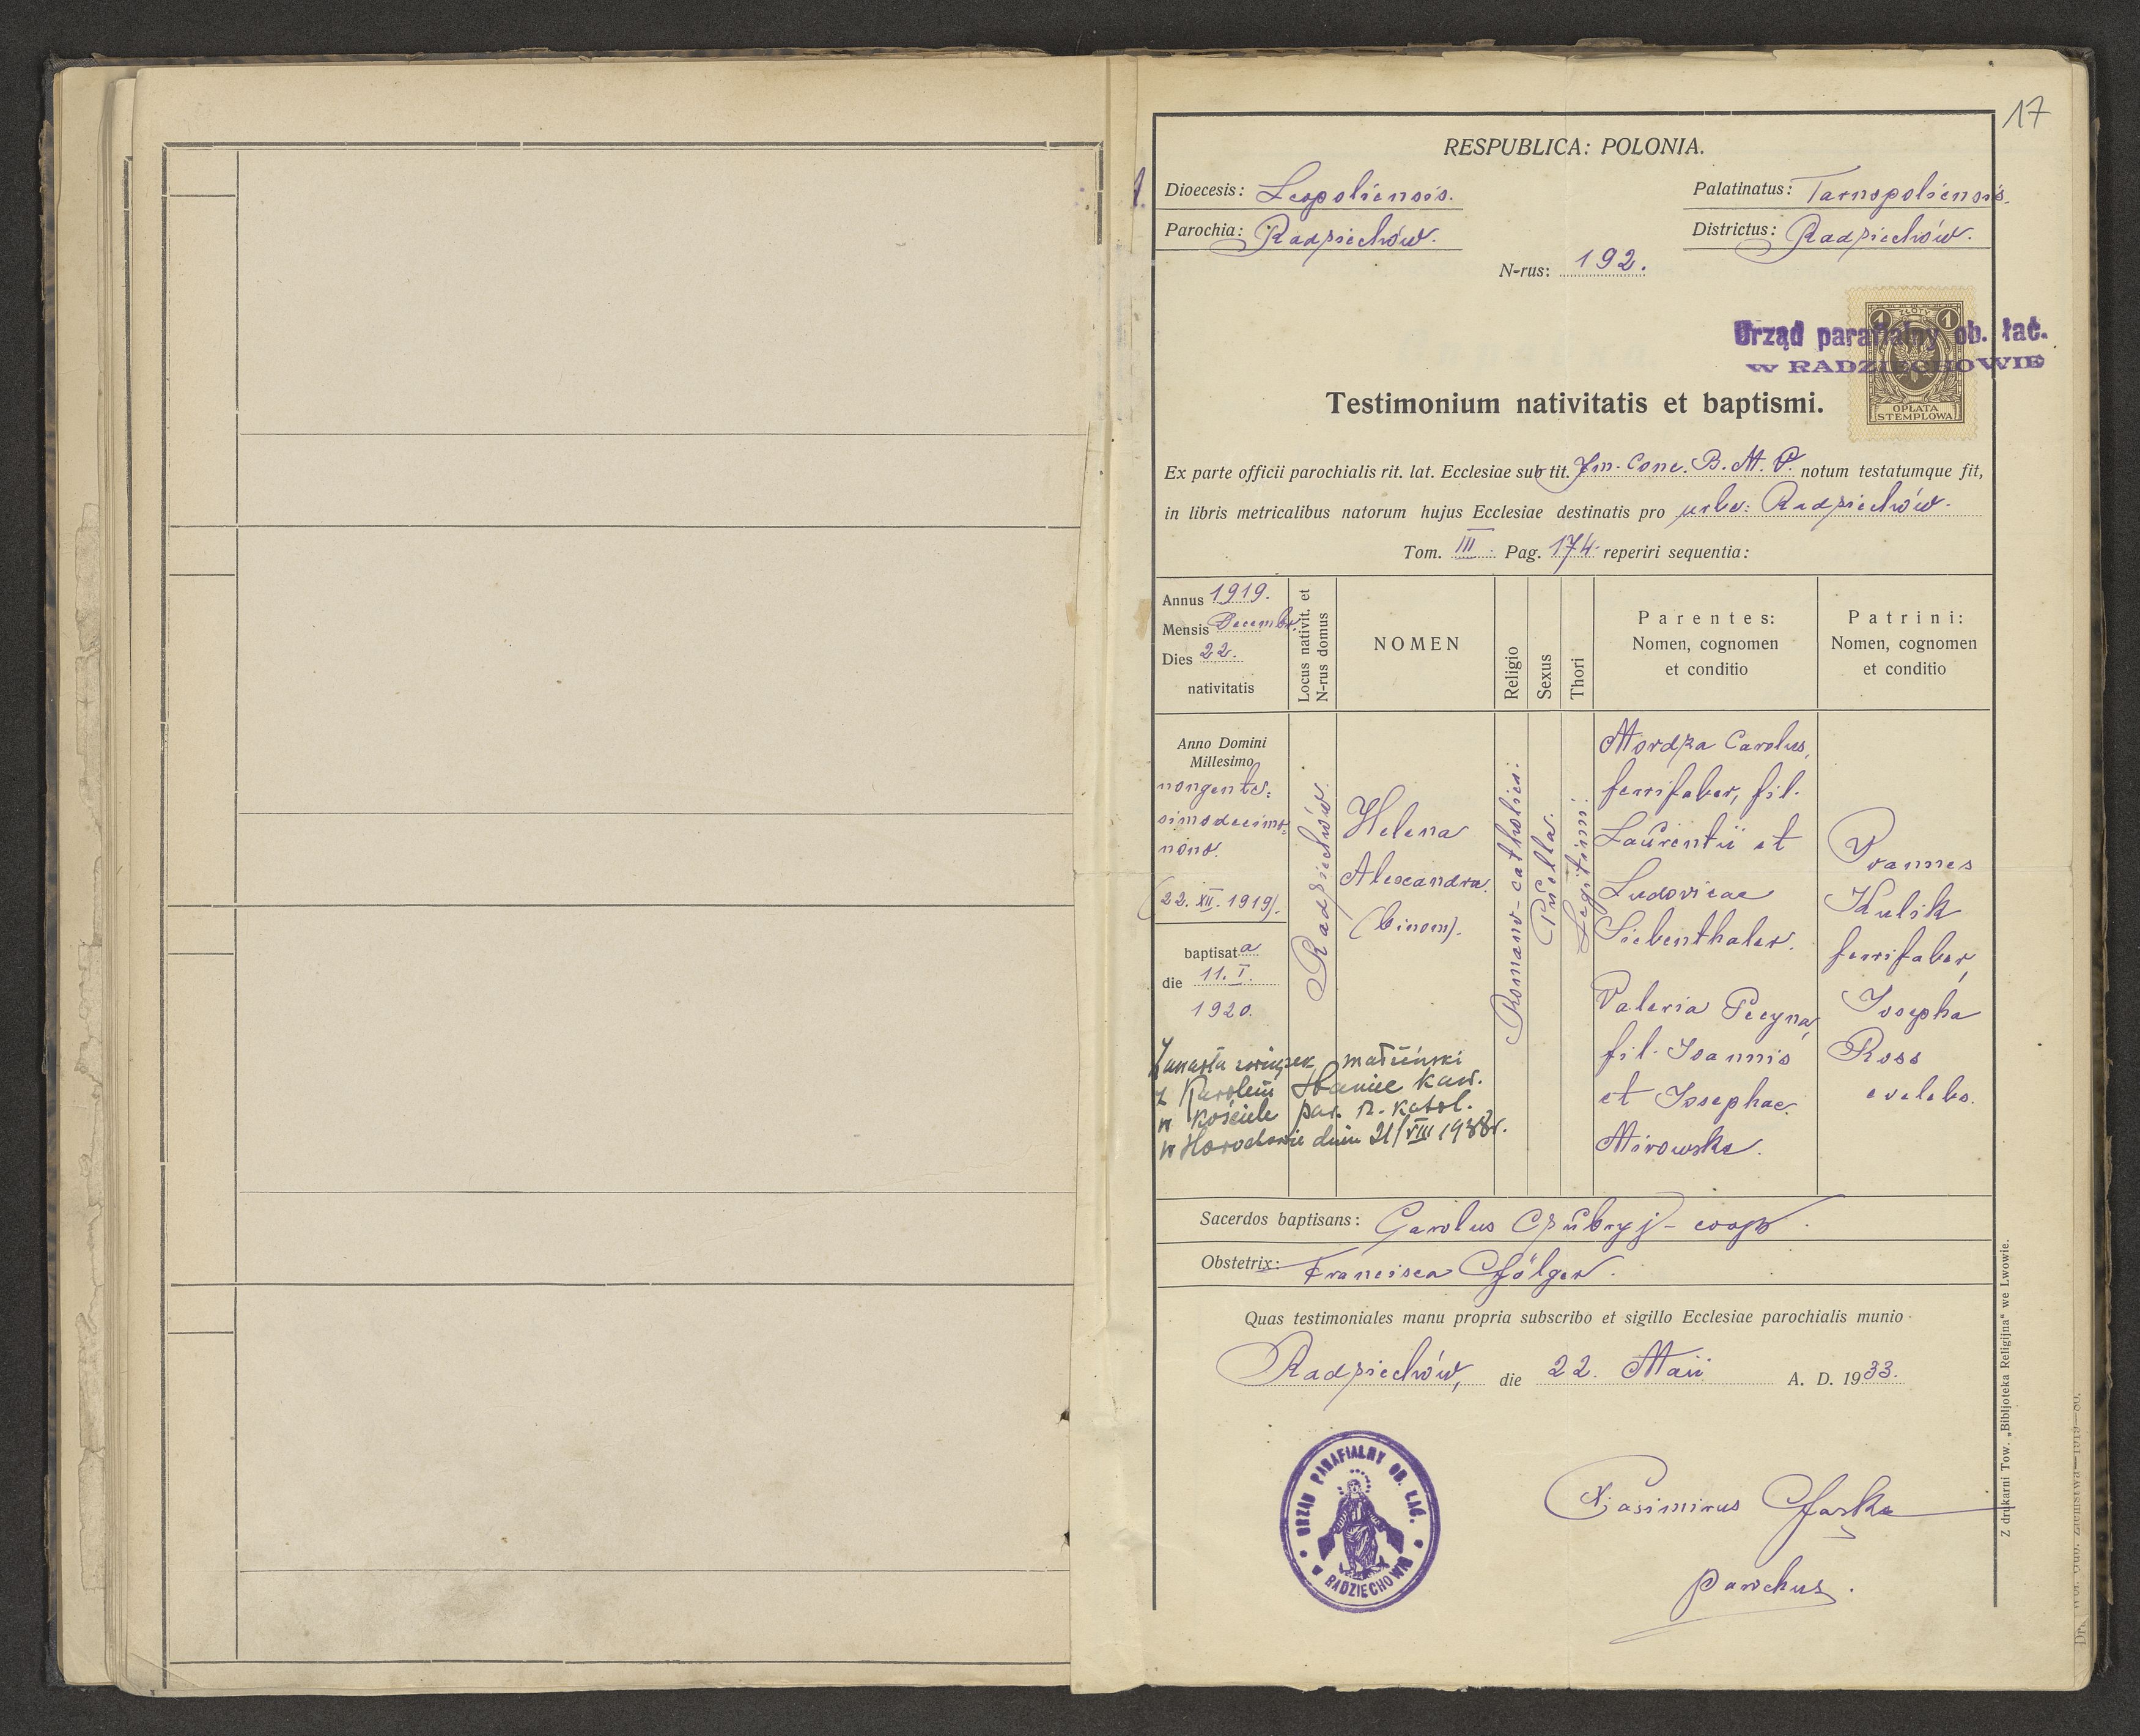 17
RESPUBLICA: POLONIA.
Dioecesis: Leopoliensis.
Palatinatus: Tarnopoliensis.
Parochia: Radziechów.
Districtus: Radziechów.
N-rus: 192.
1 ZŁOTY 1
Urząd parafialny ob. łac.
W RADZIECHOWIE
OPŁATA
STEMPLOWA
Testimonium nativitatis et baptismi.
Ex parte officii parochialis rit. lat. Ecclesiae sub tit. Im. Conc. B. M. V. notum testatumque fit,
in libris metricalibus natorum hujus Ecclesiae destinatis pro urbe: Radziechów.
Tom. III. Pag. 174. reperiri sequentia:
Annus 1919.
Mensis Decembr.
Dies 22.
nativitatis
Locus nativit. et
N-rus domus
NOMEN
Religio
Sexus
Thori
Parentes:
Nomen, cognomen
et conditio
Patrini:
Nomen, cognomen
et conditio
Anno Domini
Millesimo
nongente=
simodecimo=
nono.
(22. XII. 1919).
baptisata
die 11. I.
1920.
Radziechów.
Helena
Alexandra.
(binom).
Romano-catholica.
Puella.
Legitimi.
Mordza Carolus,
ferrifaber, fil.
Laurentii et
Ludovicae
Siebenthaler.
Valeria Pecyna,
fil. Joannis
et Josephae
Mirowska.
Joannes
Kulik
ferrifaber,
Josepha
Ross
caelebs.
Zawarła związek małżeński
z Karolem kaw.
w kościele par. rz. katol.
w dniu 21/VIII 1938r.
Sacerdos baptisans: Carolus Czubryj - coop.
Obstetrix: Francisca
Quas testimoniales manu propria subscribo et sigillo Ecclesiae parochialis munio
Radziechów, die 22. Maii A. D. 1933.
URZĄD PARAFIALNY OB. ŁAC.
W RADZIECHOWIE
X. Casimirus
parochus.
Z drukarni Tow. „Bibljoteka Religijna" we Lwowie.